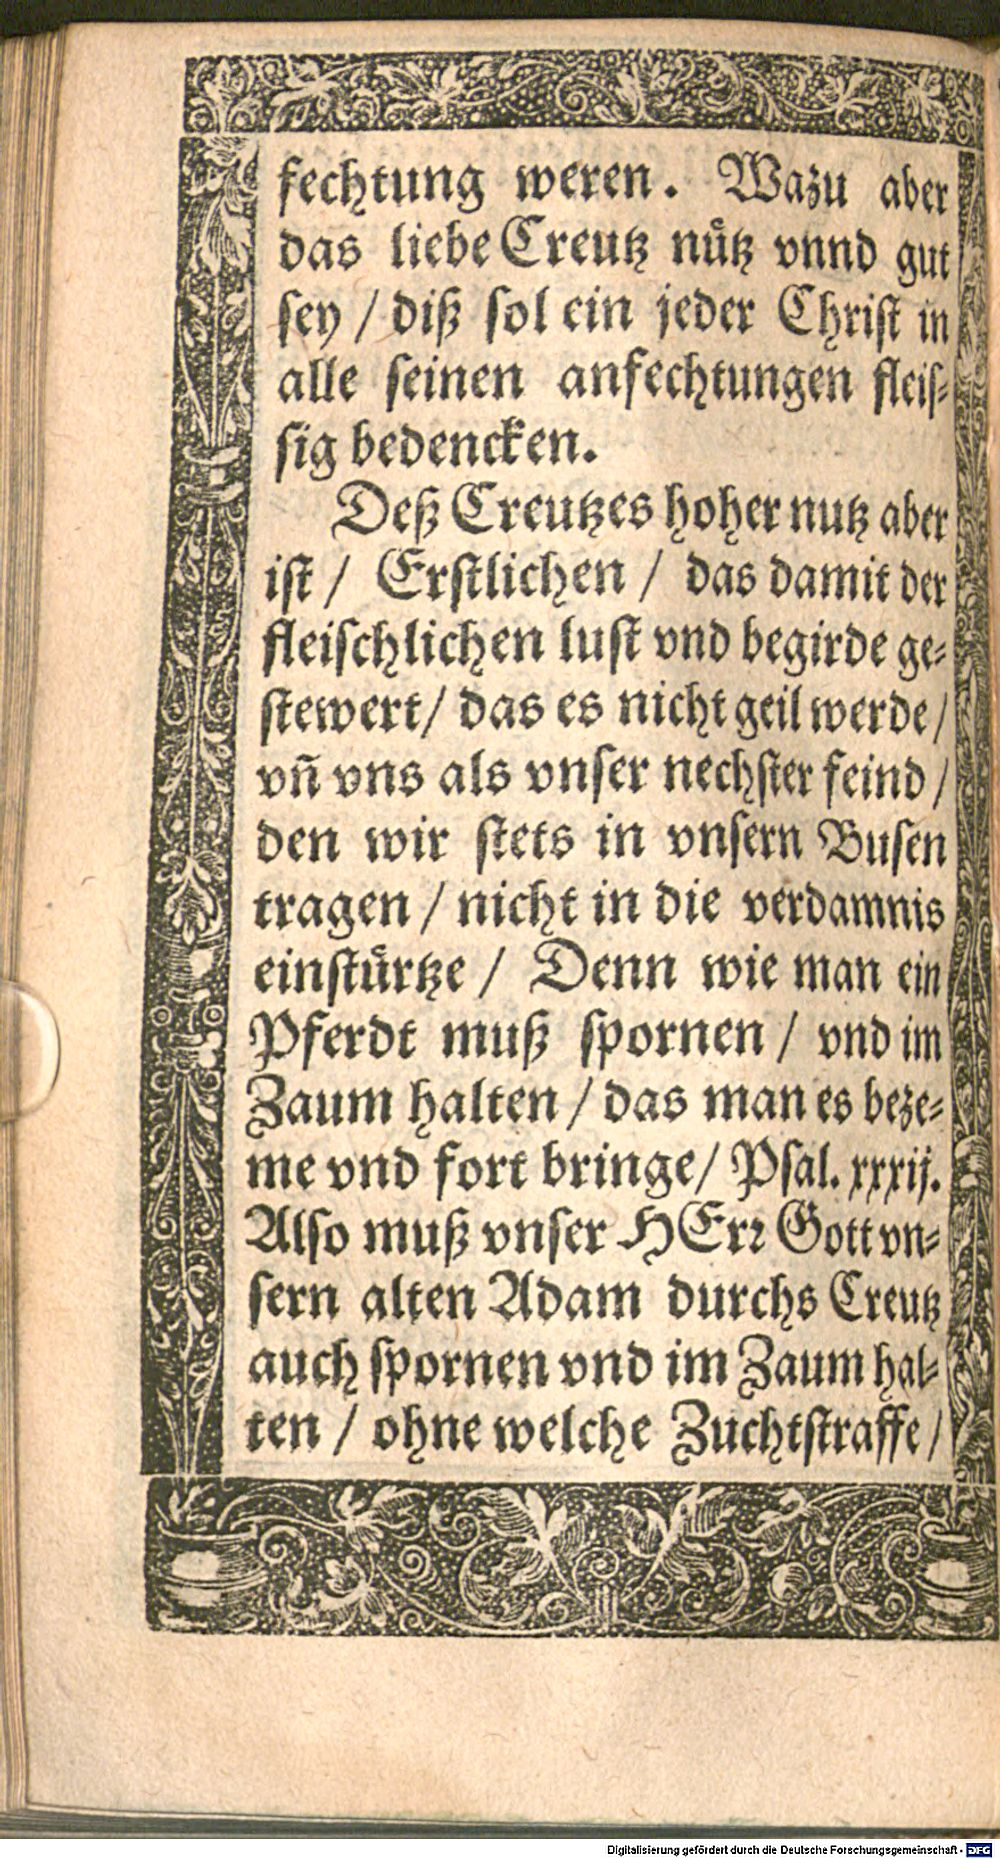 fechtung weren. Wazu aber
das liebe Creutz nuͤtz vnnd gut
sey / diß sol ein jeder Christ in
alle seinen anfechtungen fleis-
sig bedencken.
Deß Creutzes hoher nutz aber
ist / Erstlichen / das damit der
fleischlichen lust vnd begirde ge-
stewert / das es nicht geil werde /
vñ vns als vnser nechster feind /
den wir stets in vnsern Busen
tragen / nicht in die verdamnis
einstuͤrtze / Denn wie man ein
Pferdt muß spornen / vnd im
Zaum halten / das man es beze-
me vnd fort bringe / Psal. xxxij.
Also muß vnser HErr Gott vn-
sern alten Adam durchs Creutz
auch spornen vnd im Zaum hal-
ten / ohne welche Zuchtstraffe /
Digitalisierung gefördert durch die Deutsche Forschungsgemeinschaft - DFG